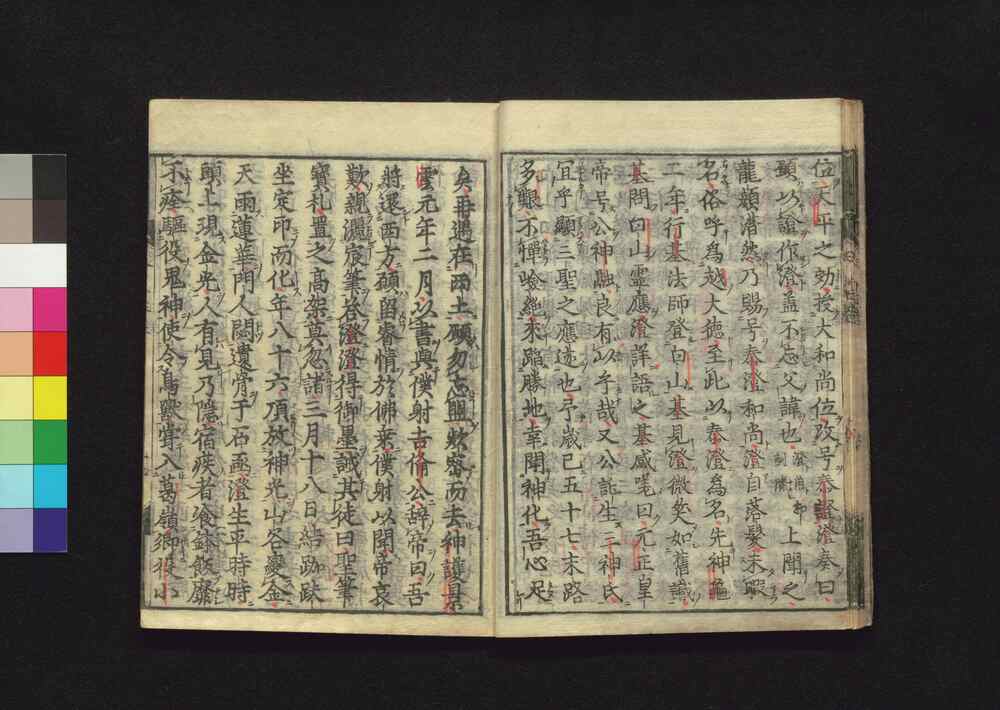 位大平之勅授大和尚位改号泰證澄奏曰
願以證作澄蓋不忘父諱也上聞之
龍顏潸然乃賜号泰澄和尚澄自落髮未暇
名俗呼為越大德至此以泰澄為名先神龜
二年行基法師登白山基見澄微笑如舊識
基問曰山靈應澄詳語之基感嘆曰元正皇
帝号公神融良有以乎哉又公託生三神氏
宜乎顯三聖之應迹也予歲已五十七末路
多艱不憚嶮絶來蹈勝地幸聞神化吾心足
矣再遇在西土願勿忘盟款密而去神護景
雲元年二月以書與僕射吉備公辭帝曰吾
將還西方願留睿情於佛乘僕射以聞帝哀
歎親灑宸筆答澄澄得御墨誡其徒曰聖筆
寶札置之高架莫忽諸三月十八日結跏趺
坐定印而化年八十六頂放神光山谷變金
天雨蓮華門人閟遺骨于石函澄生平時時
頭上現金光人有見乃隱宿疾者飡鉢飯靡
不痊驅役鬼神使令鳥獸嘗入葛嶺御役小